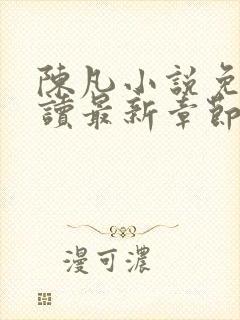 陳凡小說免
讀最新章節
漫可濃